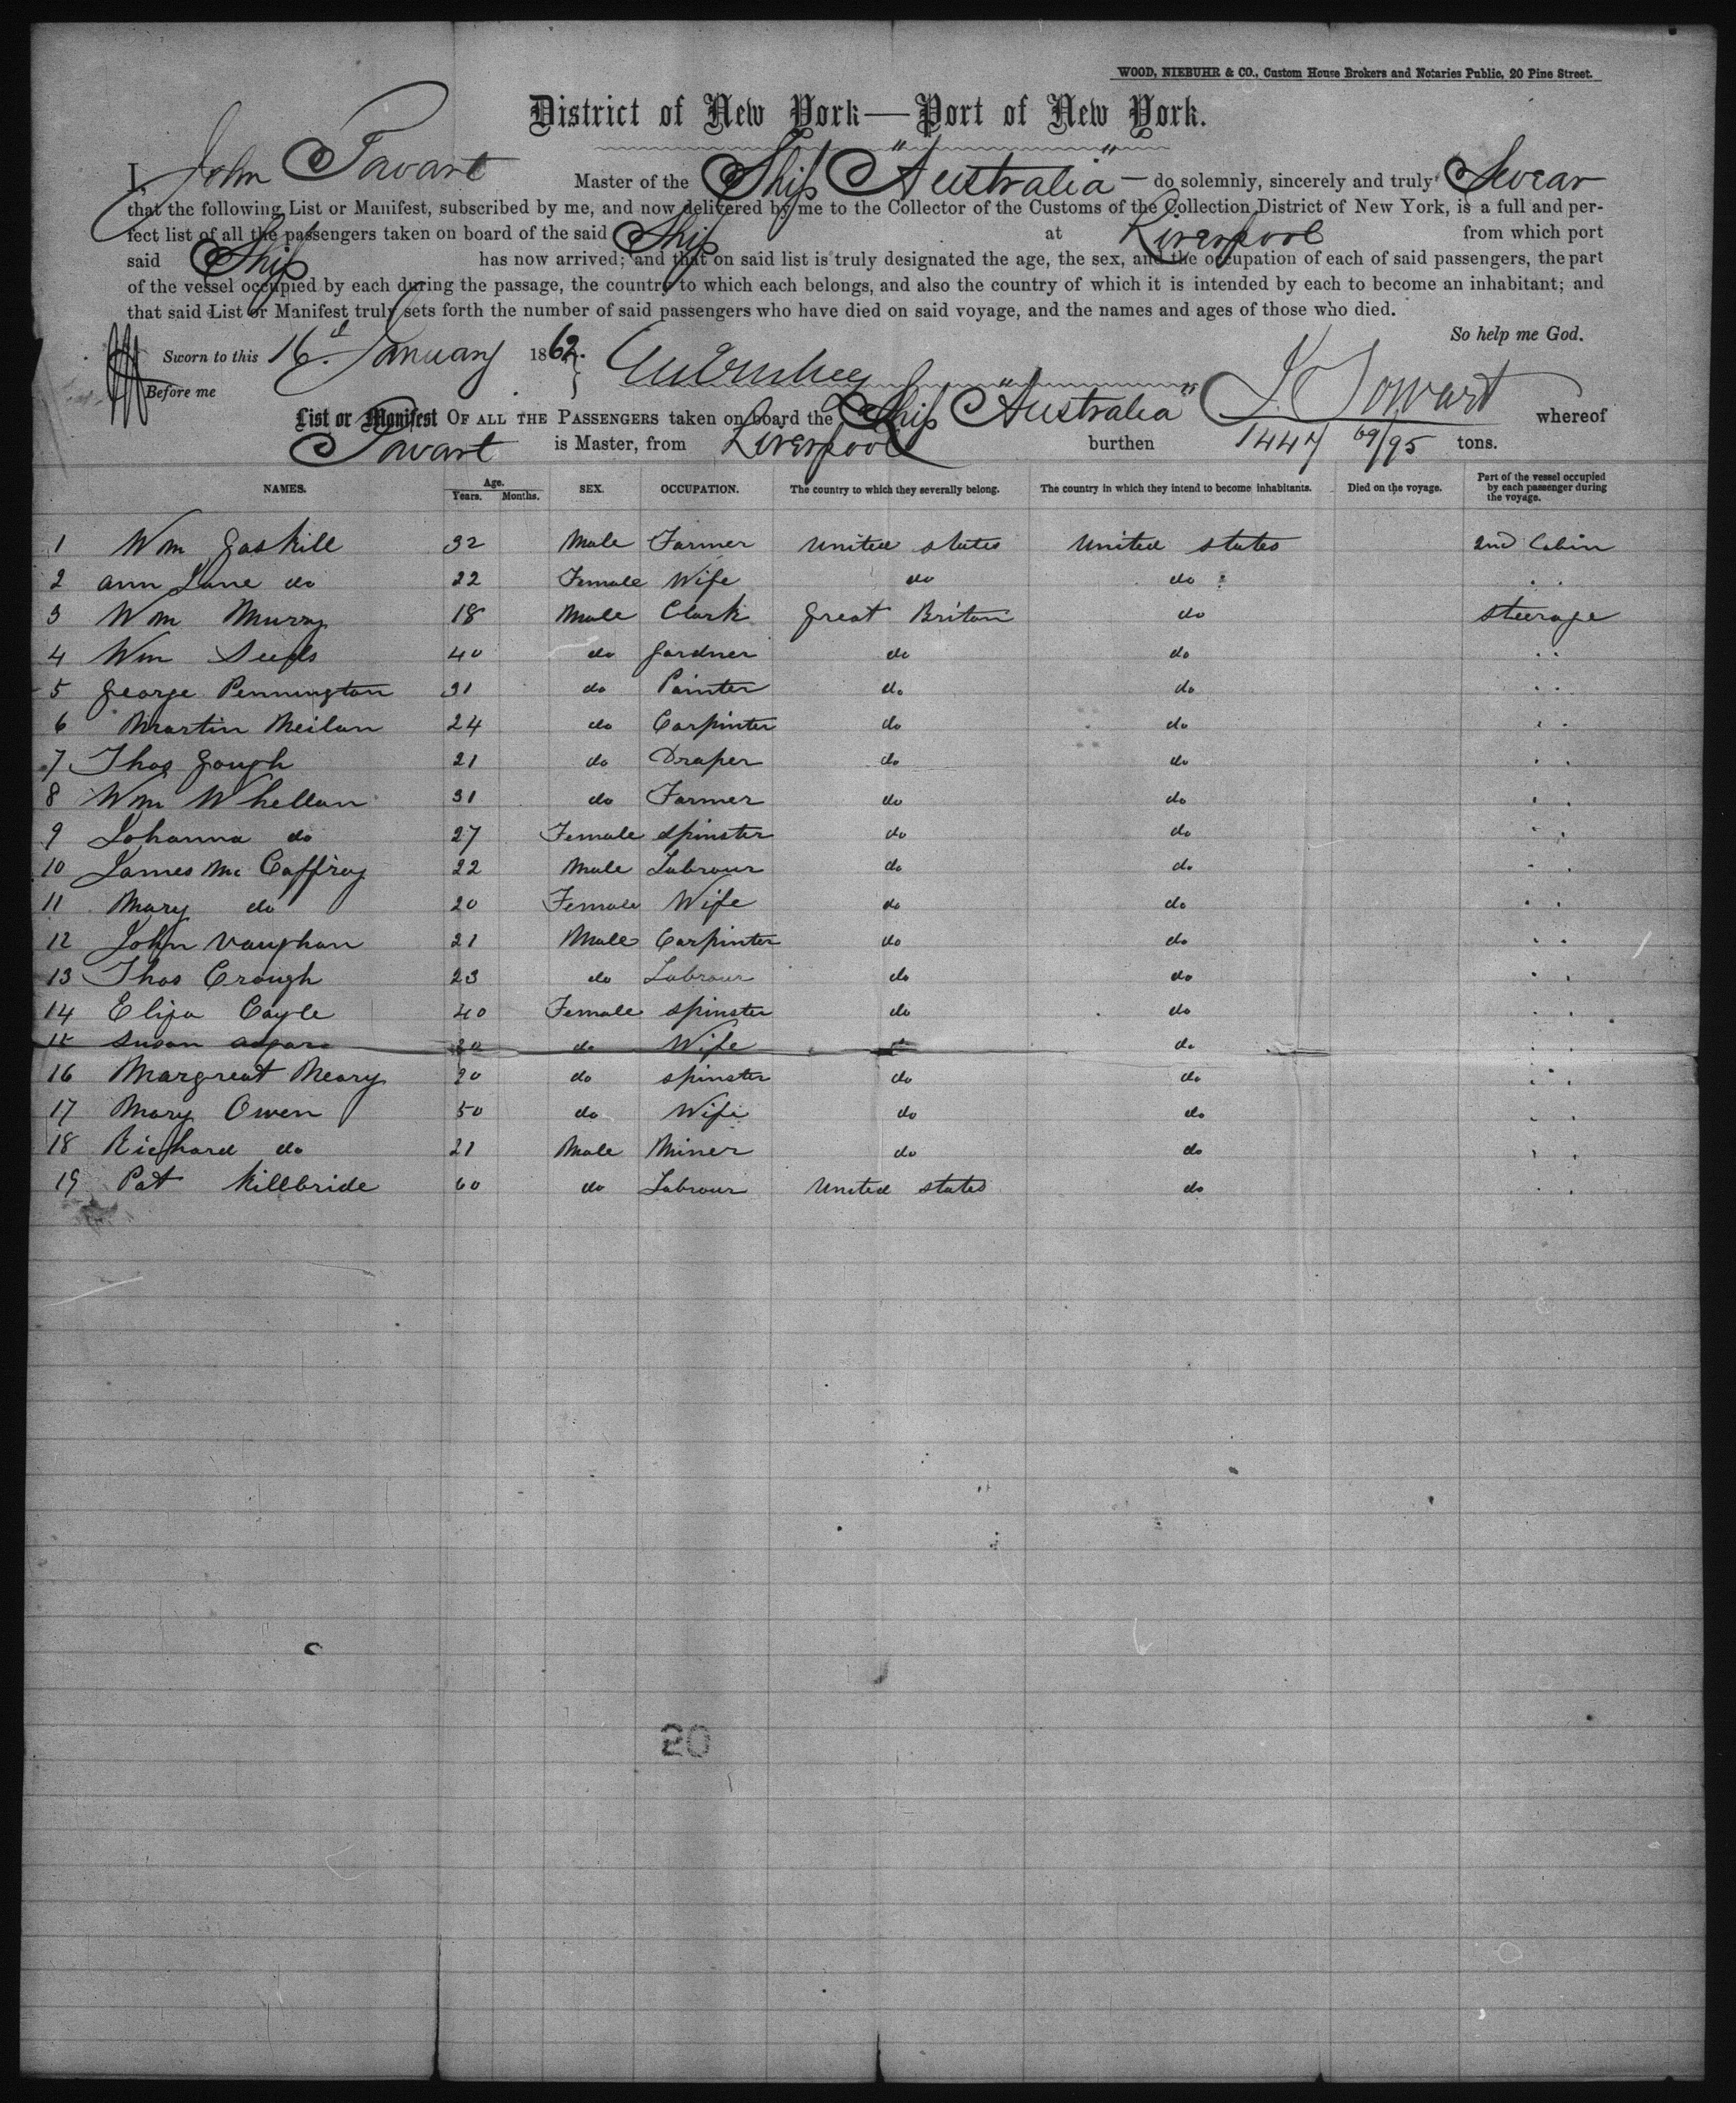 WOOD, NIEBUHR & CO., Custom House Brokers and Notaries Public, 20 Pine Street.
District of New York—Port of New York.
I, John Towart Master of the Ship "Australia" — do solemnly, sincerely and truly Swear
that the following List or Manifest, subscribed by me, and now delivered by me to the Collector of the Customs of the Collection District of New York, is a full and per-
fect list of all the passengers taken on board of the said Ship at Liverpool from which port
said Ship has now arrived; and that on said list is truly designated the age, the sex, and the occupation of each of said passengers, the part
of the vessel occupied by each during the passage, the country to which each belongs, and also the country of which it is intended by each to become an inhabitant; and
that said List or Manifest truly sets forth the number of said passengers who have died on said voyage, and the names and ages of those who died.
So help me God.
Sworn to this 16th January 1862.
Before me J. Towart
List or Manifest OF ALL THE PASSENGERS taken on board the Ship "Australia" whereof
Towart is Master, from Liverpool burthen 1447 69/95 tons.
NAMES. Age. Years. Months. SEX. OCCUPATION. The country to which they severally belong. The country in which they intend to become inhabitants. Died on the voyage. Part of the vessel occupied by each passenger during the voyage.
1 Wm Gaskill 32 Male Farmer United States United States 2nd Cabin
2 Ann Jane do 22 Female Wife do do " "
3 Wm Murry 18 Male Clark Great Britan do Steerage
4 Wm 40 do Gardner do do " "
5 George Pennington 31 do Painter do do " "
6 Martin Meilan 24 do Carpinter do do " "
7 Thos Gough 21 do Draper do do " "
8 Wm Whellan 31 do Farmer do do " "
9 Johanna do 27 Female Spinster do do " "
10 James Mc Caffray 22 Male Labrour do do " "
11 Mary do 20 Female Wife do do " "
12 John Vaughan 21 Male Carpinter do do " "
13 Thos Crough 23 do Labrour do do " "
14 Eliza Coyle 40 Female Spinster do do " "
15 Susan do Wife do " "
16 Margreat Neary 20 do Spinster do do " "
17 Mary Owen 50 do Wife do do " "
18 Richard do 21 Male Miner do do " "
19 Pat Killbride 60 do Labrour United States do " "
20